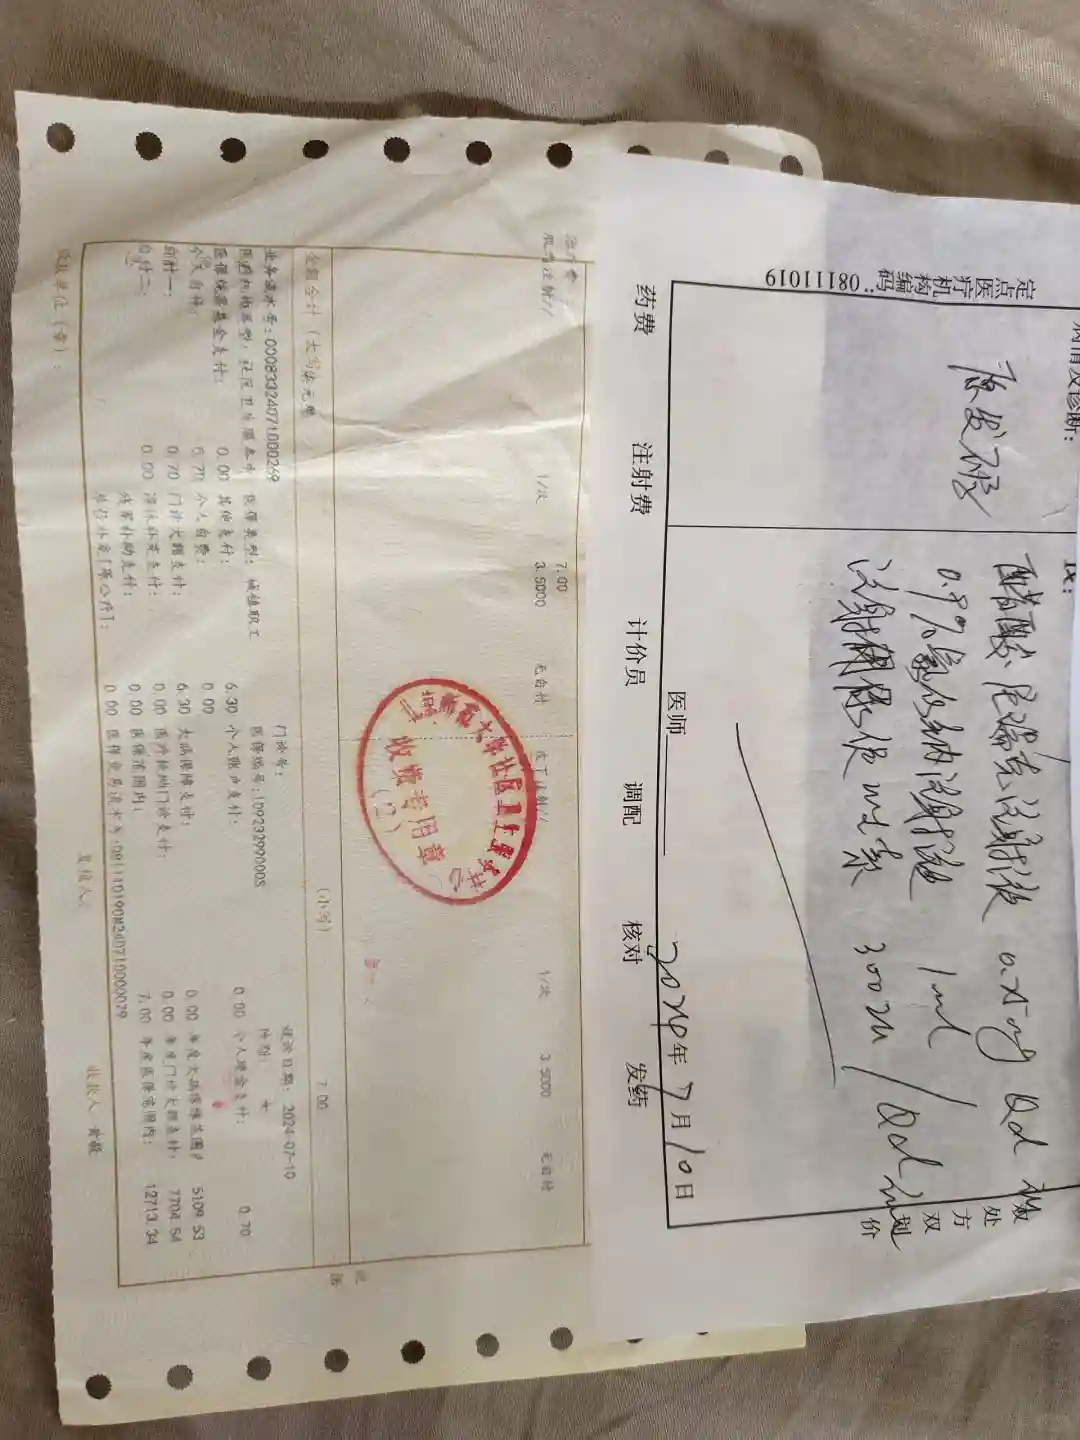 定点医疗机构编码：08111019
病情及诊断：
原发不孕
醋酸 注射液 0.25mg Qd
0.9%氯化钠注射液 1ml
注射用 尿促 素 300u / Qd
处方双划价
医师
2024年7月10日
药费 注射费 计价员 调配 核对 发药
治疗费
肌 注射//
7.00
1/次 3.5000 无自付 皮下注射// 1/次 3.5000 无自付
金额合计（大写）柒元整 （小写） 7.00
业务流水号：000833240710002​69 门诊号： 就诊日期：2024-07-10
医疗机构类型：社区卫生服务中 医保类型：城镇职工 医保编号：109232990005 性别：女
医保统筹基金支付： 0.00 其他支付： 6.30 个人账户支付： 0.00 个人现金支付： 0.70
个人自付： 0.70 个人自费： 0.00
自付一： 0.70 门诊大额支付： 6.30 大病保障支付： 0.00 年度大病保障范围内 5109.53
自付二： 0.00 退休补充支付： 0.00 医疗救助门诊支付： 0.00 年度门诊大额支付： 7704.54
残军补助支付： 0.00 医保范围内： 7.00 年度医保范围内： 12713.34
单位补充[原公疗]： 0.00 医保交易流水号：08111019
收款单位（章）： 复核人： 收款人：
师范大学社区卫生服务中心
收费专用章
(2)